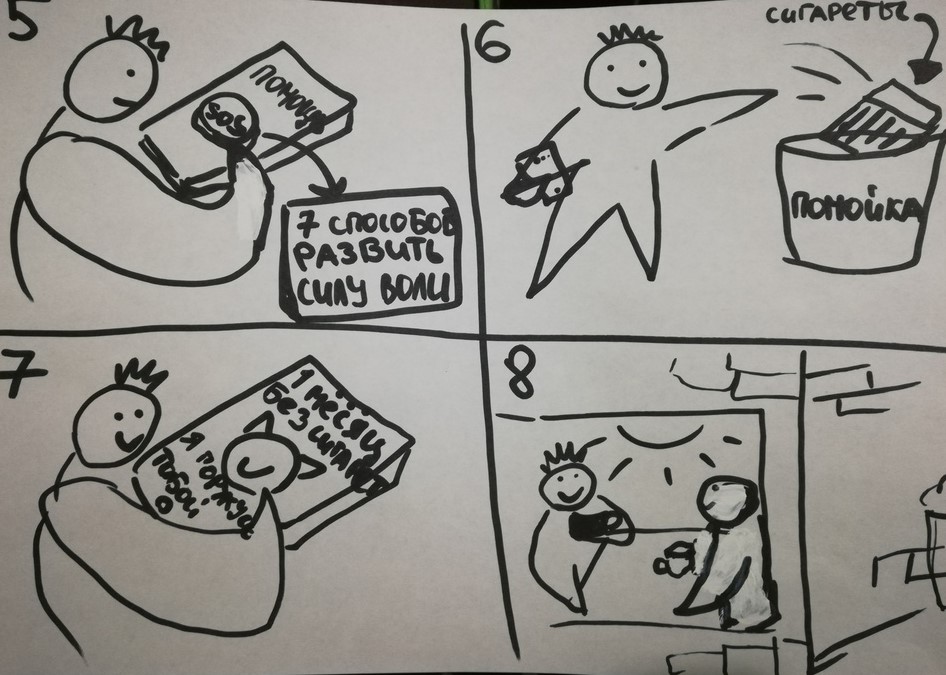 5
ПОМОЩЬ
SOS
7 СПОСОБОВ
РАЗВИТЬ
СИЛУ ВОЛИ
6
СИГАРЕТЫ
ПОМОЙКА
7
1 МЕСЯЦ
БЕЗ СИГАРЕТ
Я ГОРЖУСЬ
ТОБОЙ
8